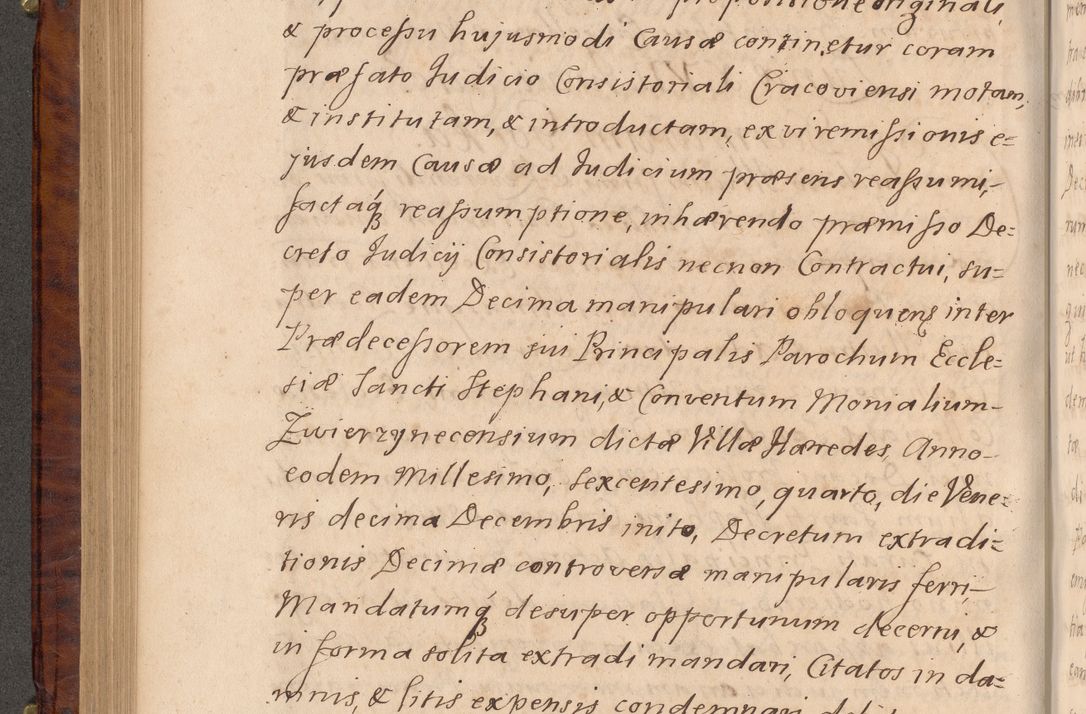 propositione originali,
& processu hujusmodi Causæ continetur coram
præfato Judicio Consistoriali Cracoviensi motam,
& institutam, & introductam, ex vi remissionis e=
jusdem Causæ ad Judicium præsens reassumi,
factaq́ꝫ reassumptione, inhærendo præmisso De=
creto Judicij Consistorialis necnon Contractui, su=
per eadem Decima manipulari obloquenꝭ inter
Prædecessorem sui Principalis Parochum Eccle=
siæ Sancti Stephani, & Conventum Monialium
Zwierzynecensium dictæ Villæ Hæredes, Anno
eodem Millesimo, sexcentesimo, quarto, die Vene=
ris decima Decembris inito, Decretum extradi=
tionis Decimæ controversæ manipularis ferri,
Mandatumq́ꝫ desuper opportunum decerni, &
in forma solita extradi mandari, Citatos in da=
mnis, & litis expensis condemnari